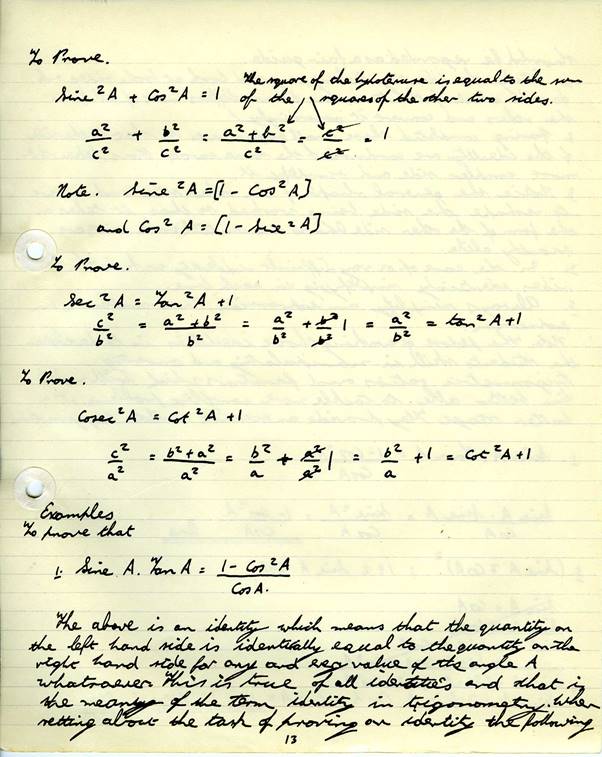 To Prove.
Sine ²A + Cos ²A = 1
The square of the hypotenuse is equal to the sum
of the squares of the other two sides.
a²/c² + b²/c² = a² + b²/c² = c²/c² = 1
Note. Sine ²A = [1 - Cos ²A]
and Cos² A = [1 - Sine ²A]
To Prove.
Sec ²A = Tan ²A + 1
c²/b² = a² + b²/b² = a²/b² + b²/b² 1 = a²/b² = tan² A + 1
To Prove.
Cosec ²A = Cot ²A + 1
c²/a² = b² + a²/a² = b²/a + a²/a² 1 = b²/a + 1 = Cot ²A + 1
Examples
To prove that
1. Sine A. Tan A = 1 - Cos ²A/Cos A.
The above is an identity which means that the quantity on
the left hand side is identically equal to the quantity on the
right hand side for any and value of the angle A
whatsoever. This is true of all identities and that is
the meaning of the term identity in trigonometry. When
setting about the task of proving an identity the following
13